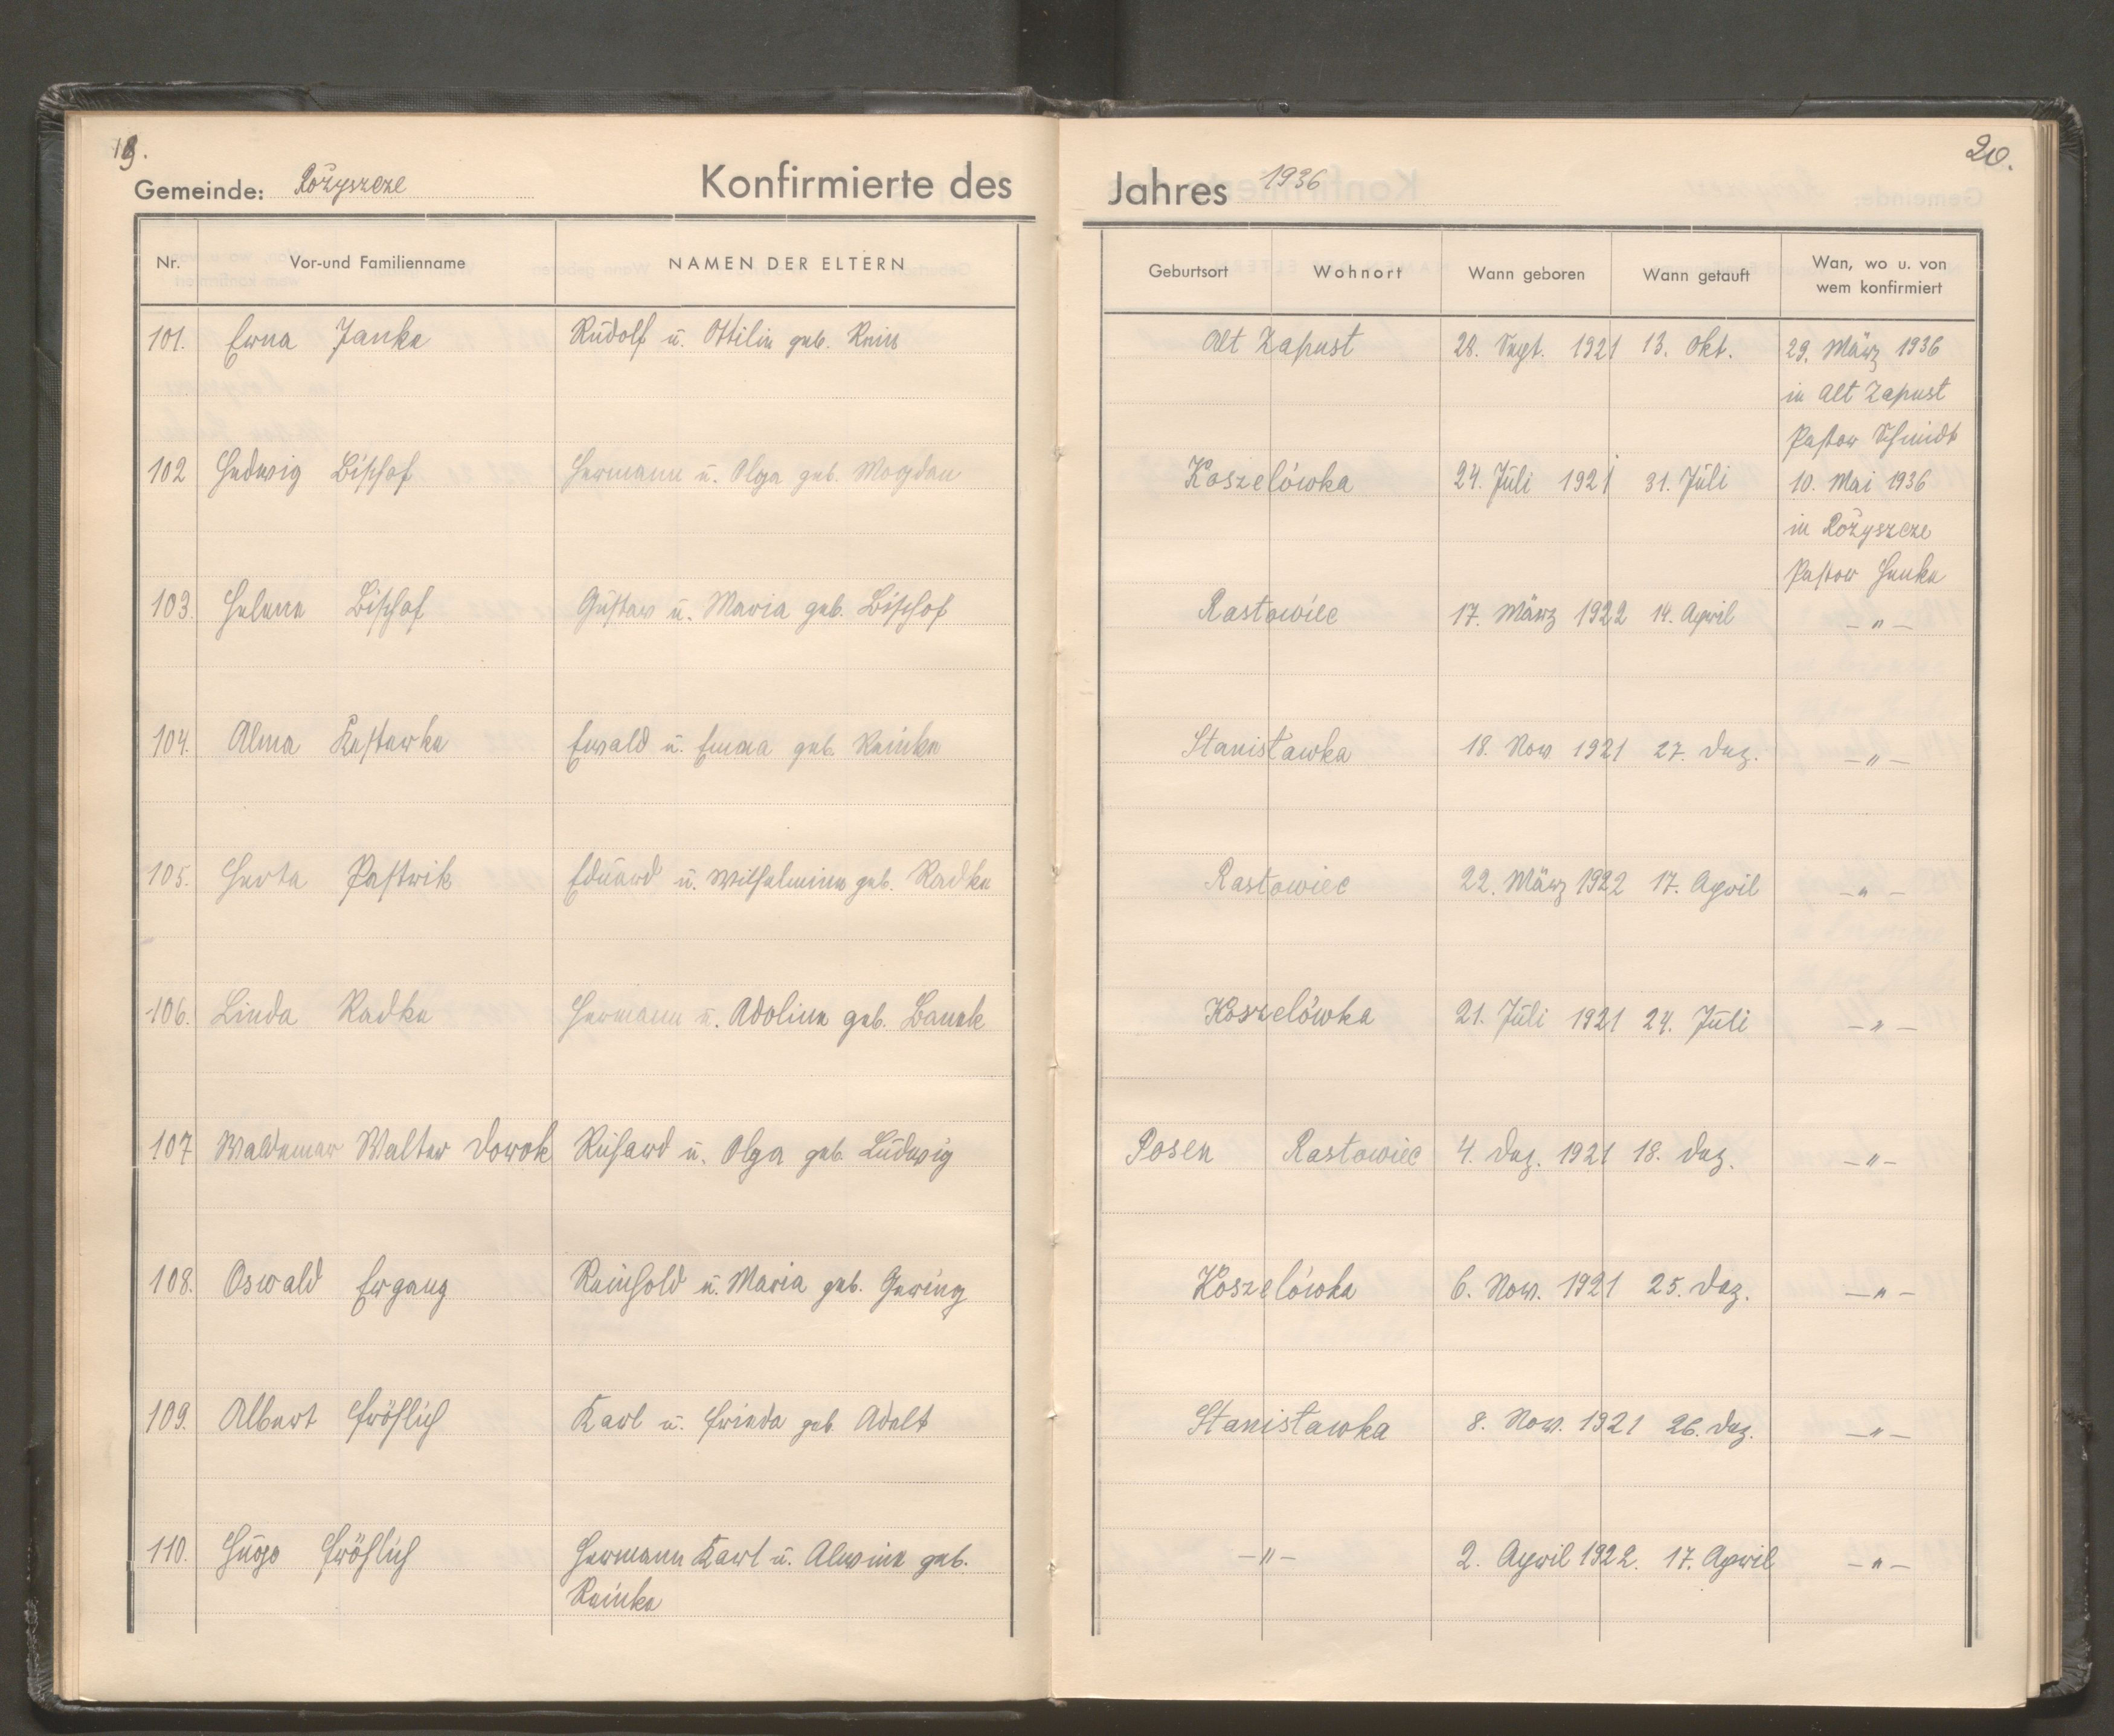 19. 20.
Gemeinde: Rożyszcze Konfirmierte des Jahres 1936
Nr. Vor-und Familienname NAMEN DER ELTERN Geburtsort Wohnort Wann geboren Wann getauft Wan, wo u. von wem konfirmiert
101. Erna Janke Rudolf u. Ottilie geb. Reus Alt Zapust 28. Sept. 1921 13. Okt. 29. März 1936
in Alt Zapust
Pastor Schmidt
102 Hedwig Bischof Hermann u. Olga geb. Mogdan Koszelówka 24. Juli 1921 31. Juli 10. Mai 1936
in Rożyszcze
Pastor Henke
103. Helene Bischof Gustav u. Maria geb. Bischof Rastowiec 17. März 1922 14. April – " –
104. Alma Kestawke Ewald u. Emma geb. Reinke Stanisławka 18. Nov. 1921 27. Dez. – " –
105. Herta Pastwik Eduard u. Wilhelmine geb. Radke Rastowiec 22. März 1922 17. April – " –
106. Linda Radke Hermann u. Adoline geb. Banek Koszelówka 21. Juli 1921 24. Juli – " –
107 Waldemar Walter Dowok Richard u. Olga geb. Ludwig Posen Rastowiec 4. Dez. 1921 18. Dez. – " –
108. Oswald Ergang Reinhold u. Maria geb. Gering Koszelówka 6. Nov. 1921 25. Dez. – " –
109. Albert Fröhlich Karl u. Frieda geb. Adelt Stanisławka 8. Nov. 1921 26. Dez. – " –
110. Hugo Fröhlich Hermann Karl u. Alwine geb. – " – 2. April 1922. 17. April – " –
Reinke